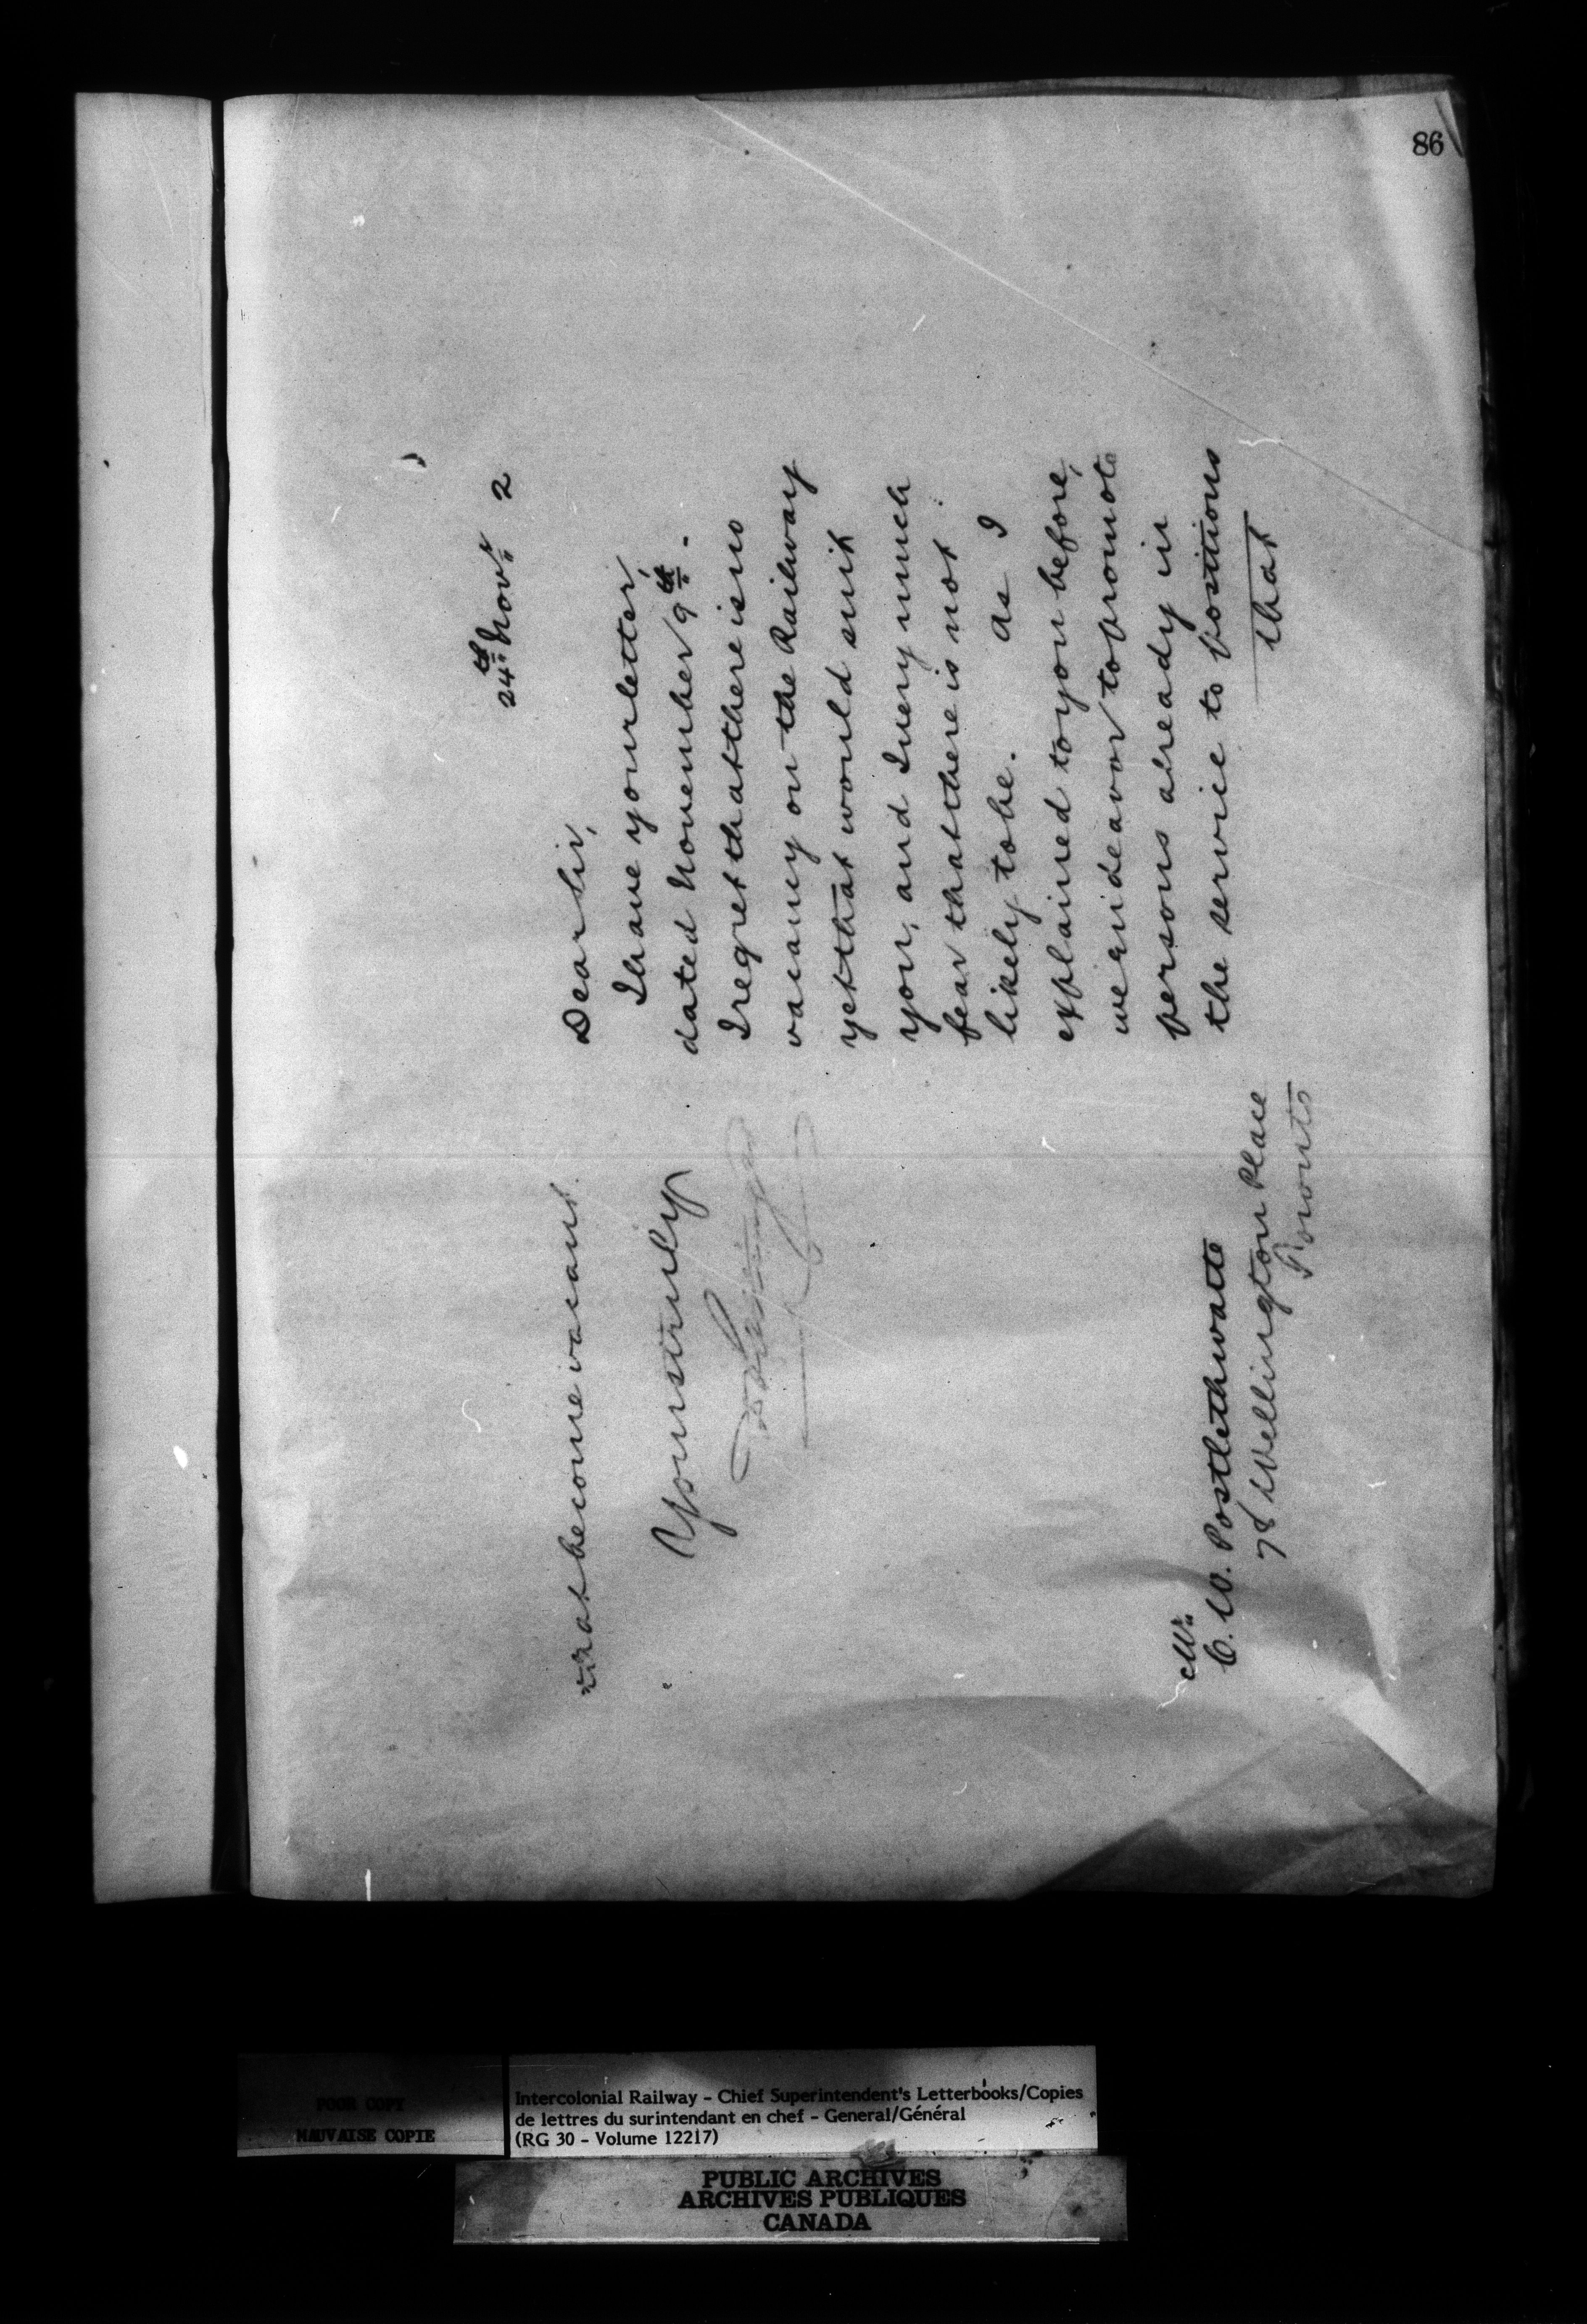 86
24th Novr 2
Dear Sir,
I have your letter,
dated November 9th.
I regret that there is no
vacancy on the Railway
yet that would suit
you, and I very much
fear that there is not
likely to be. As I
explained to you before,
we endeavor to promote
persons already in
the service to positions
that
that become vacant.
Yours truly
Mr.
C. W. Postlethwaite
78 Wellington Place
Toronto
POOR COPY
MAUVAISE COPIE
Intercolonial Railway - Chief Superintendent's Letterbooks/Copies
de lettres du surintendant en chef - General/Général
(RG 30 - Volume 12217)
PUBLIC ARCHIVES
ARCHIVES PUBLIQUES
CANADA